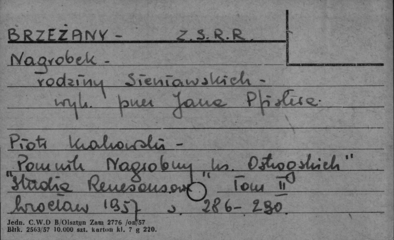 BRZEŻANY - Z.S.R.R.
Nagrobek -
rodziny Sieniawskich -
wyk. przez Jana Pfistera.
Piotr Krakowski -
"Pomnik Nagrobny ks. Ostrogskich"
"Studia Renesansowe" Tom II
Wrocław 1957 s. 286-290.
Jedn. C.W.D B/Olsztyn Zam 2776 /op/57
Bltk. 2563/57 10.000 szt. karton kl. ? g 220.